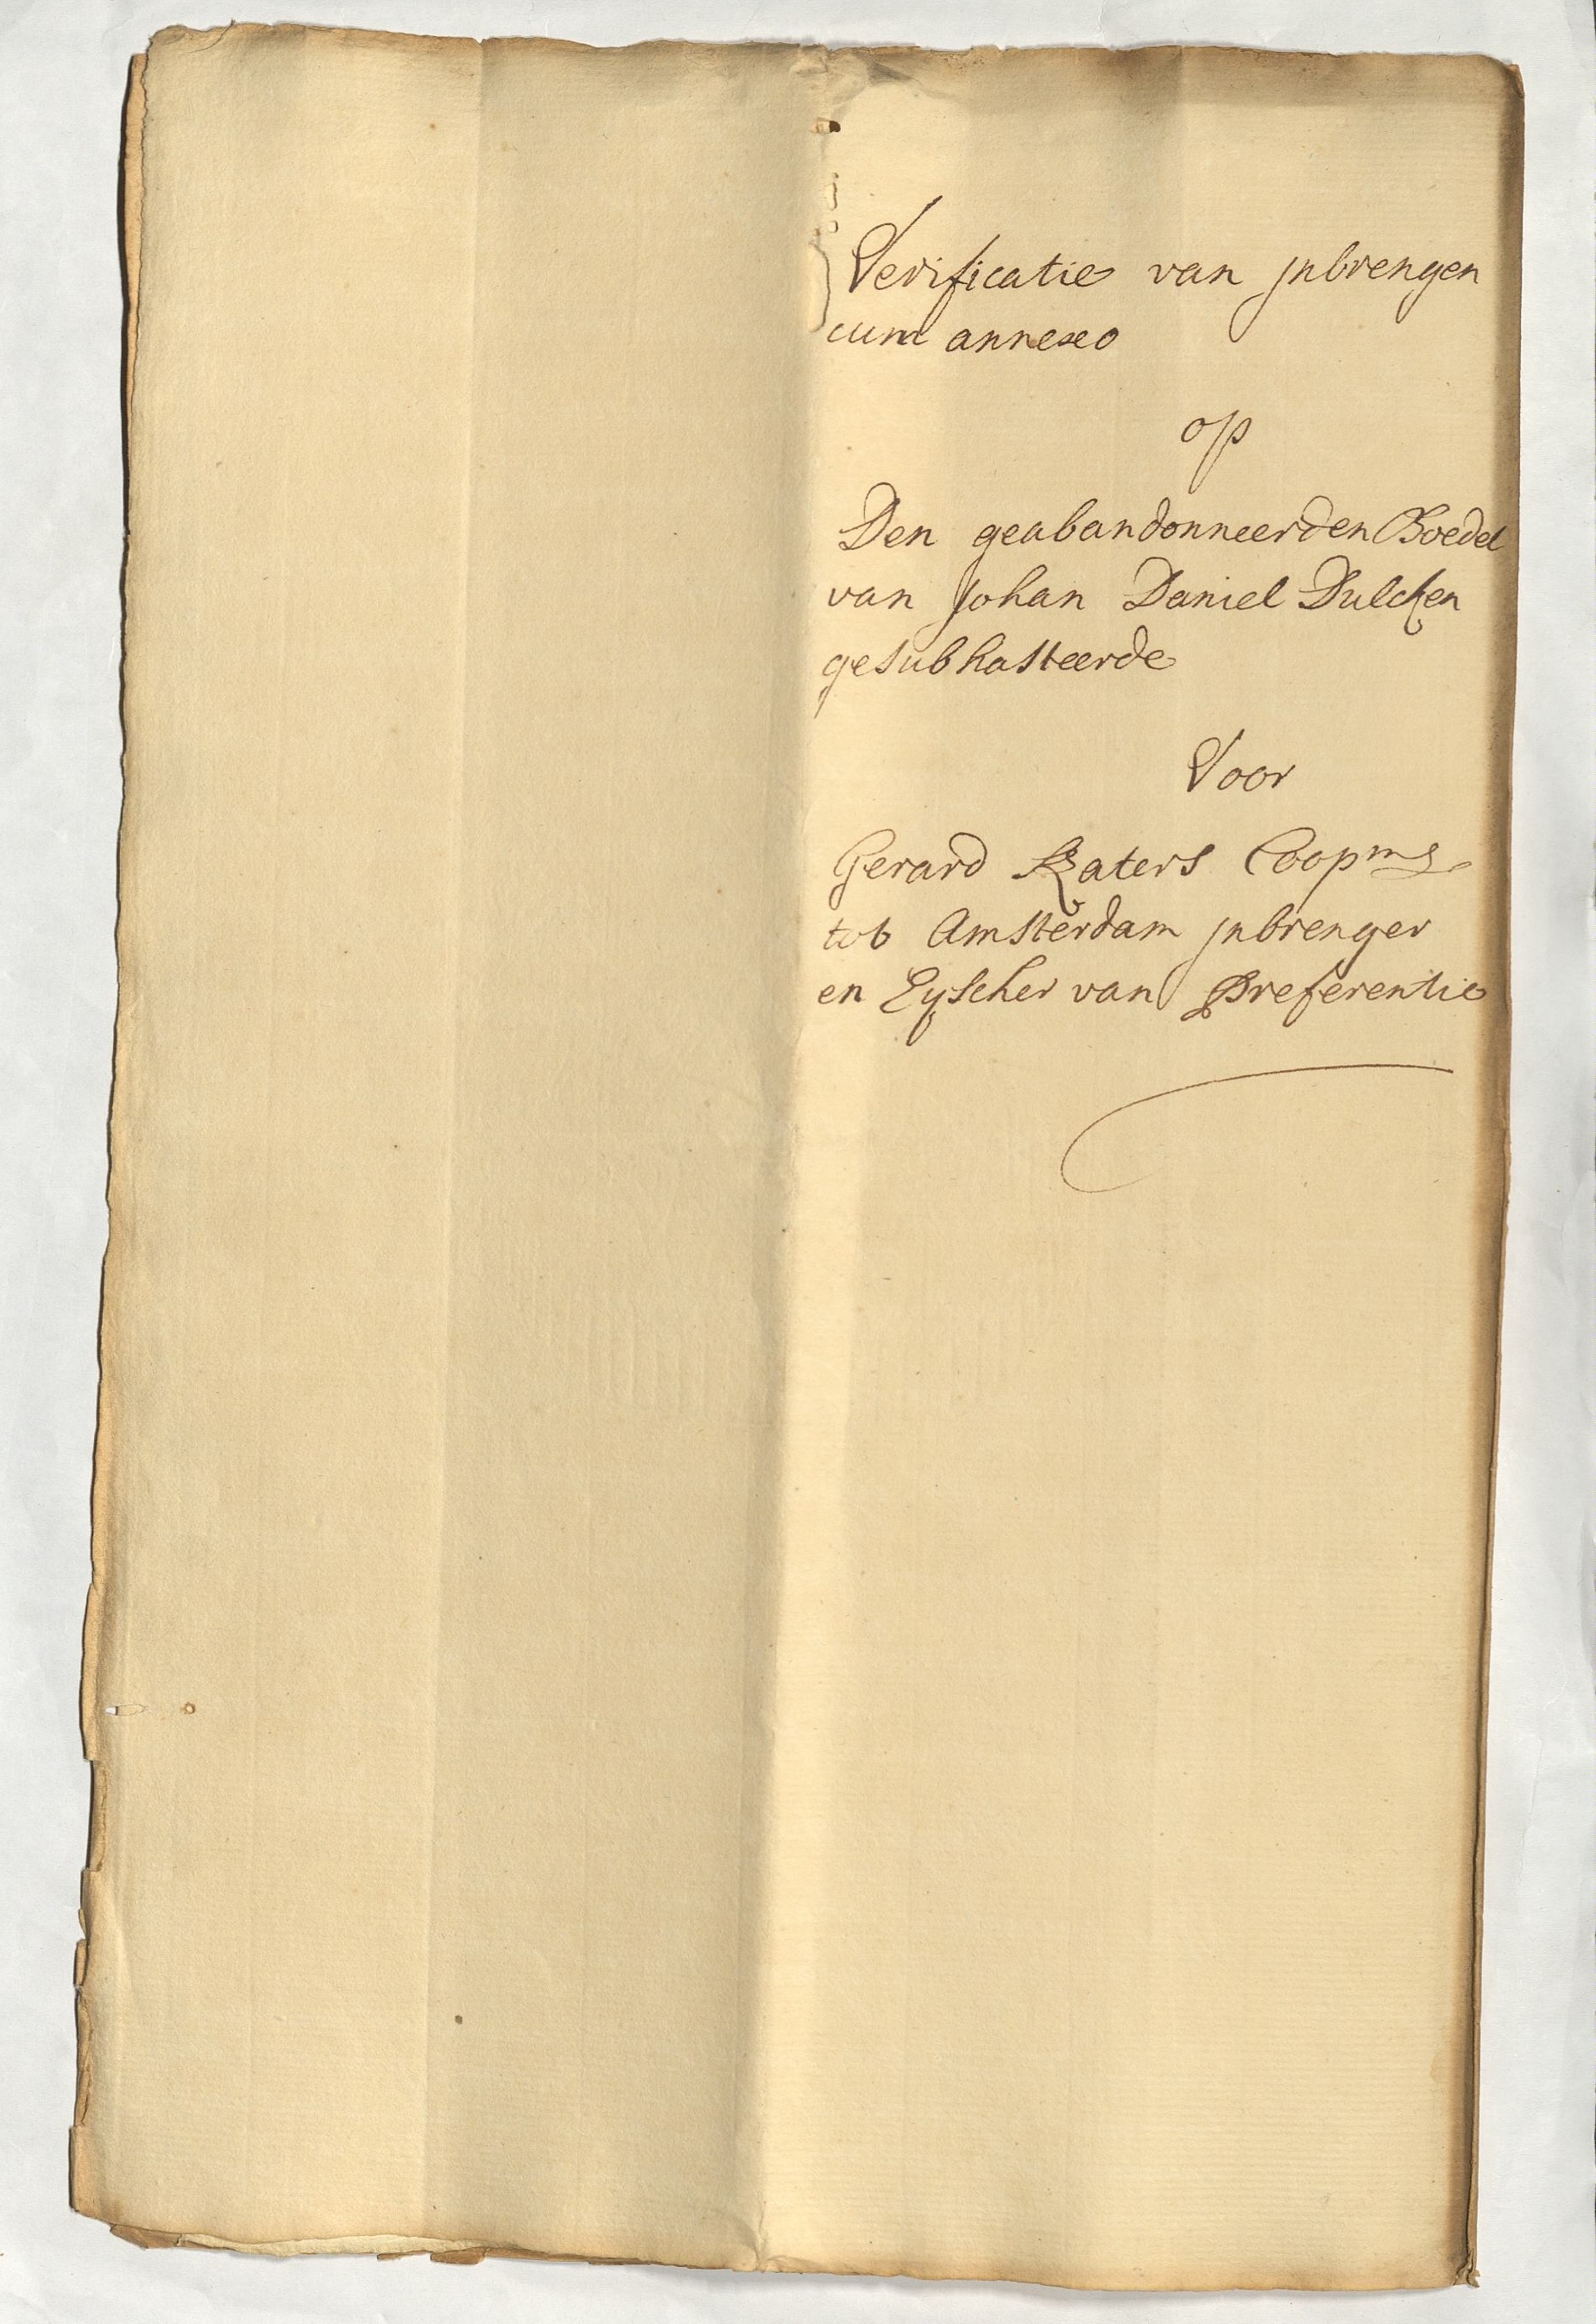 Verificatie van jnbrengen
cum annexo
op
Den geabandonneerden Boedel
van Johan Daniel Dulcken
gesubhasteerde
Voor
Gerard Katers Coopms
tot Amsterdam jnbrenger
en Eyscher van Preferentie